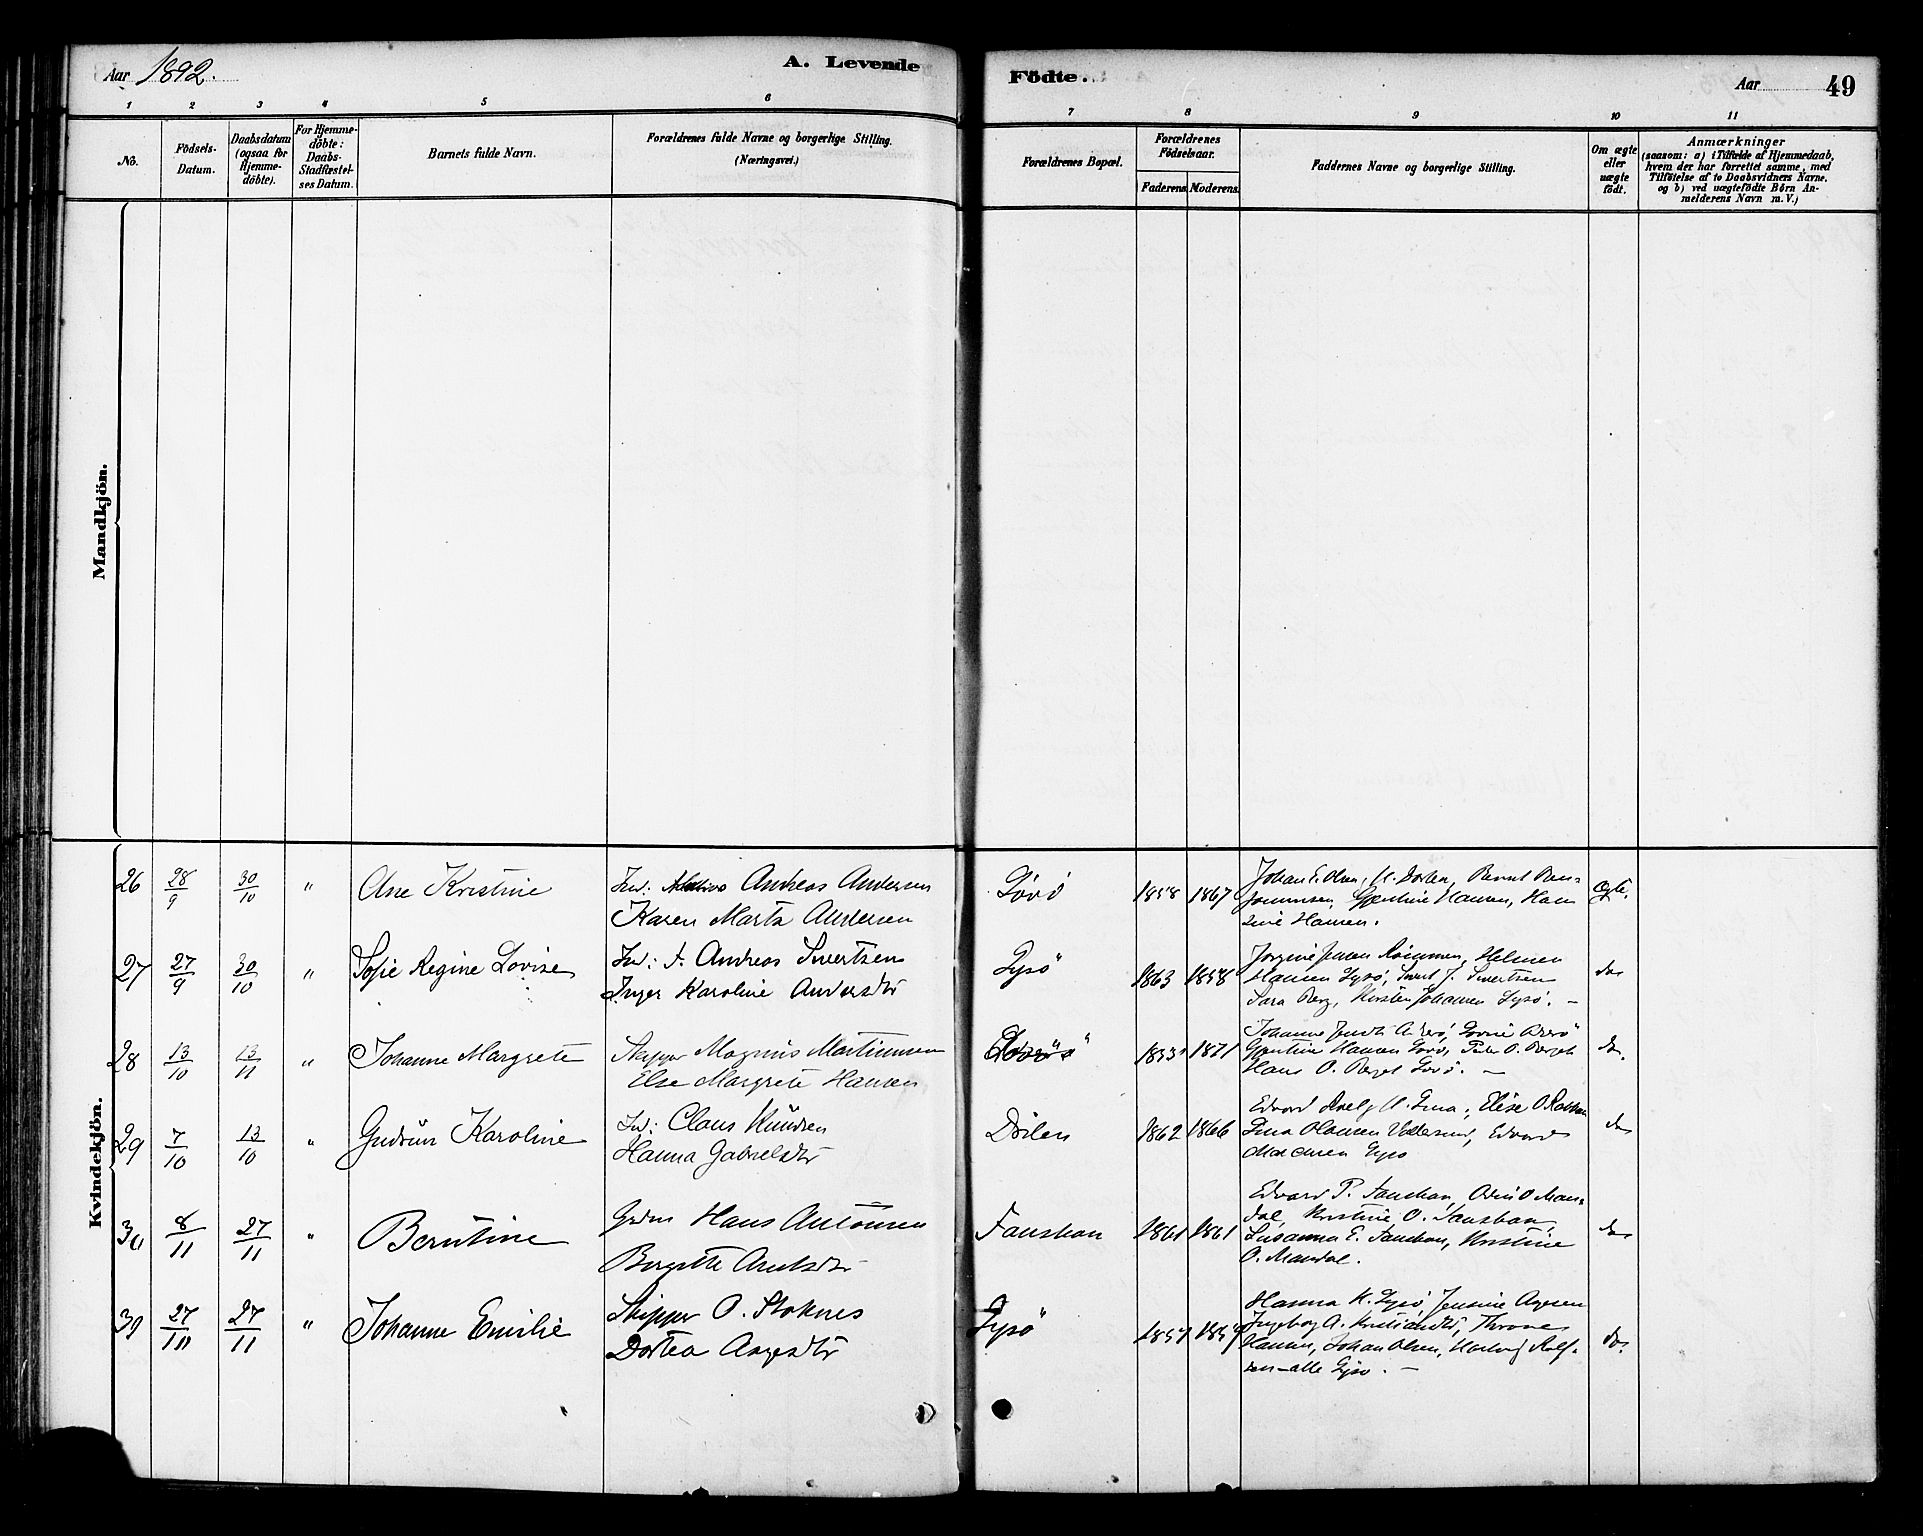 Aar 1892.
A. Levende
Födte.
Aar 49
1 2 3 4 5 6 7 8 9 10 11
No.
Födsels-
Datum.
Daabsdatum
(ogsaa for
Hjemme-
döbte).
For Hjemme-
döbte:
Daabs-
Stadfæstel-
ses Datum.
Barnets fulde Navn.
Forældrenes fulde Navne og borgerlige Stilling.
(Næringsvei.)
Forældrenes Bopæl.
Forældrenes
Födselsaar.
Faderens. Moderens.
Faddernes Navne og borgerlige Stilling.
Om ægte
eller
uægte
födt.
Anmærkninger
(saasom: a) i Tilfælde af Hjemmedaab,
hvem der har forrettet samme, med
Tilföielse af to Daabsvidners Navne.
og b) ved uægtefödte Börn An-
melderens Navn m.V.)
Mandkjön.
Kvindekjön.
26 28/9 30/10 " Ane Kristine
Ind: Andreas Andersen
Karen Marta Andersen
1858 1867
Johan E. Olsen, H. Dortea, Bernt Ben-
Hansen, Han
sine Hansen.
Ægte.
27 27/9 30/10 " Sofie Regine Lovise
Ind: J. Andreas Sivertsen
Inger Karoline Andersdtr
Lysö
1863 1858
Jorgine Jensen Helmer
Hansen Lysö, Sivert J. Sivertsen
Sara Berg, Kirsten Johansen Lysö. —
do
28 13/10 13/11 " Johanne Margrete
Skipper Magnus Martinusen
Else Margrete Hansen
1871
Hansen Peder O. Berget
Hans O. Berget
do.
29 7/10 13/10 " Gudrun Karoline
Ind: Claus Knudsen
Hanna Gabrielsdtr
1862 1866
Edvard Elise O.
Olausen Edvard
Lysö
do
30 8/11 27/11 " Berntine
Hans Antonsen
Birgitte
Fanskan
1861 1861
Edvard P. Odin O. Man-
dal, Kristine O.
Susanna E. Kristine
O. Mandal.
do
30 27/10 27/11 " Johanne Emilie
Skipper O. Stoknes
Dortea Aagesdtr
Lysö
1857
Hanna K. Lysö, Jensine Agesen
Ingeborg A. Kristiandtr,
Hansen, Johan Olsen, Rolf-
sen – alle Lysö. —
do.